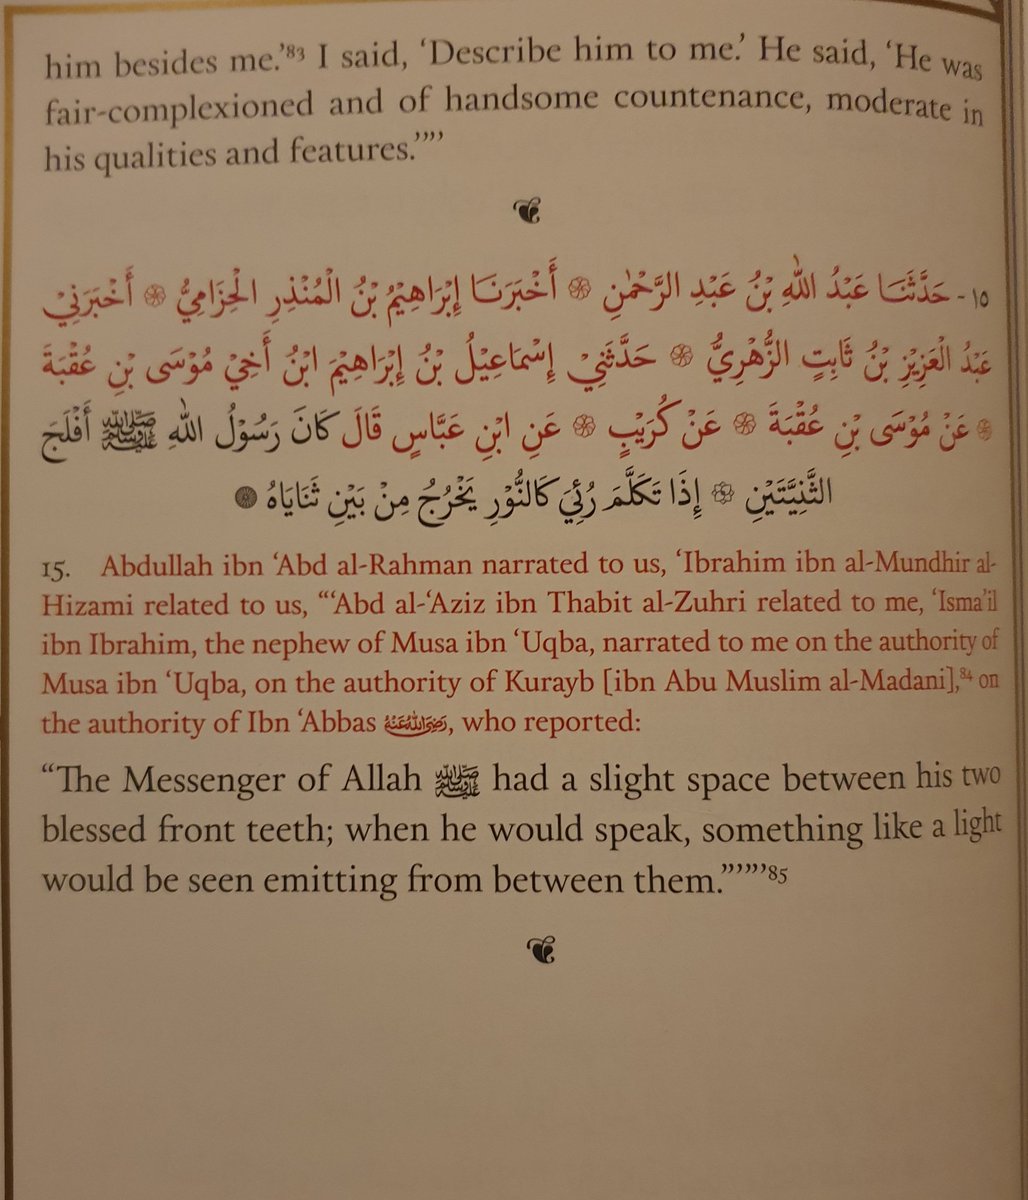 him besides me.’⁸³ I said, ‘Describe him to me.’ He said, ‘He was
fair-complexioned and of handsome countenance, moderate in
his qualities and features.’”’
١٥ - حَدَّثَنَا عَبْدُ اللّٰهِ بْنُ عَبْدِ الرَّحْمٰنِ ۞ أَخْبَرَنَا إِبْرَاهِيْمُ بْنُ الْمُنْذِرِ الْحِزَامِيُّ ۞ أَخْبَرَنِيْ
عَبْدُ الْعَزِيْزِ بْنُ ثَابِتٍ الزُّهْرِيُّ ۞ حَدَّثَنِيْ إِسْمَاعِيْلُ بْنُ إِبْرَاهِيْمَ ابْنُ أَخِيْ مُوْسَى بْنِ عُقْبَةَ
۞ عَنْ مُوْسَى بْنِ عُقْبَةَ ۞ عَنْ كُرَيْبٍ ۞ عَنِ ابْنِ عَبَّاسٍ قَالَ كَانَ رَسُوْلُ اللّٰهِ ﷺ أَفْلَجَ
الثَّنِيَّتَيْنِ ۞ إِذَا تَكَلَّمَ رُئِيَ كَالنُّوْرِ يَخْرُجُ مِنْ بَيْنِ ثَنَايَاهُ ۞
15. Abdullah ibn ‘Abd al-Rahman narrated to us, ‘Ibrahim ibn al-Mundhir al-
Hizami related to us, “‘Abd al-‘Aziz ibn Thabit al-Zuhri related to me, ‘Isma’il
ibn Ibrahim, the nephew of Musa ibn ‘Uqba, narrated to me on the authority of
Musa ibn ‘Uqba, on the authority of Kurayb [ibn Abu Muslim al-Madani],⁸⁴ on
the authority of Ibn ‘Abbas رَضِيَ اللّٰهُ عَنْهُ, who reported:
“The Messenger of Allah ﷺ had a slight space between his two
blessed front teeth; when he would speak, something like a light
would be seen emitting from between them.”’”’”⁸⁵